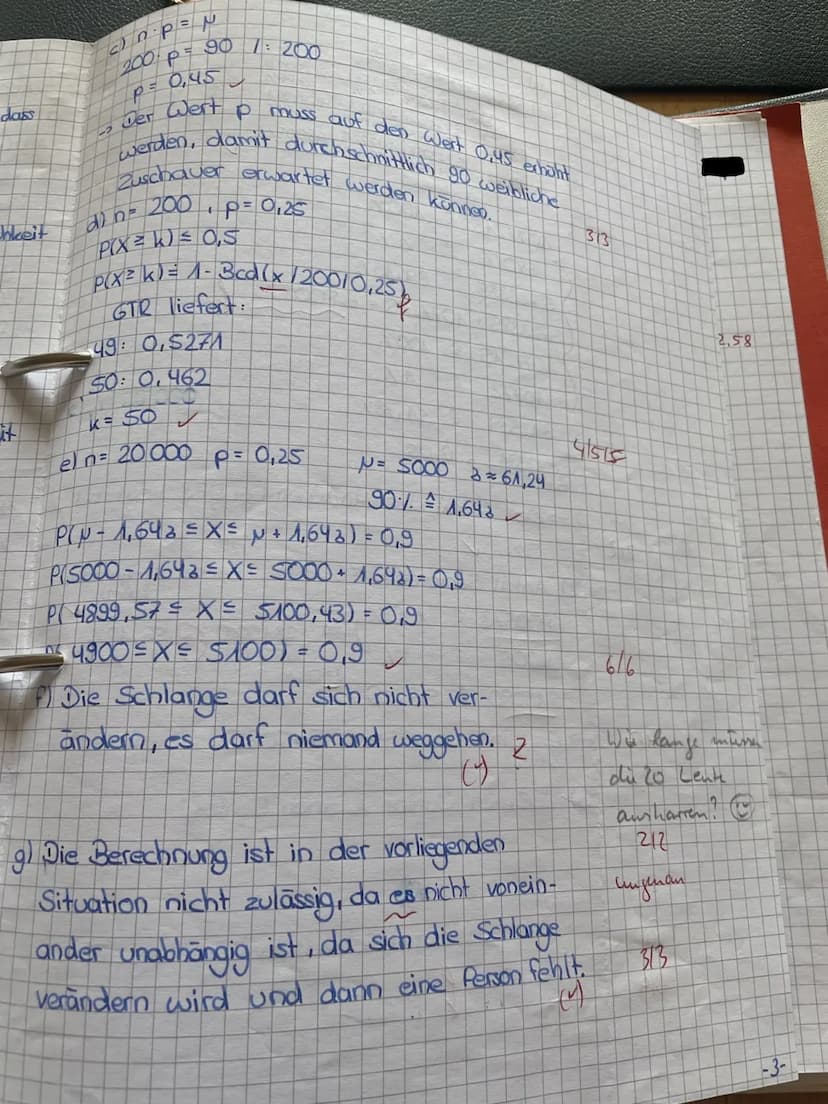 dass
hkeit
it
c) n·p = μ
200·p = 90 /: 200
p = 0,45 ✓
→ Der Wert p muss auf den Wert 0,45 erhöht
werden, damit durchschnittlich 90 weibliche
Zuschauer erwartet werden können.
3/3
d) n = 200, p = 0,25
P(X ≥ k) ≤ 0,5
P(X ≥ k) = 1 - Bcd(x/200/0,25)
f
GTR liefert:
49: 0,5271
2,58
50: 0,462
k = 50 ✓
4,5/5
e) n = 20000 p = 0,25 μ = 5000 σ ≈ 61,24
90% ≙ 1,64σ ✓
P(μ - 1,64σ ≤ X ≤ μ + 1,64σ) = 0,9
P(5000 - 1,64σ ≤ X ≤ 5000 + 1,64σ) = 0,9
P(4899,57 ≤ X ≤ 5100,43) = 0,9
4900 ≤ X ≤ 5100) = 0,9 ✓
6/6
f) Die Schlange darf sich nicht ver-
ändern, es darf niemand weggehen.
(✓)
Wie lange müssen
die 20 Leute
ausharren? ☺
2/2
g) Die Berechnung ist in der vorliegenden
Situation nicht zulässig, da es nicht vonein-
ungenau
ander unabhängig ist, da sich die Schlange
verändern wird und dann eine Person fehlt.
(✓)
3/3
-3-